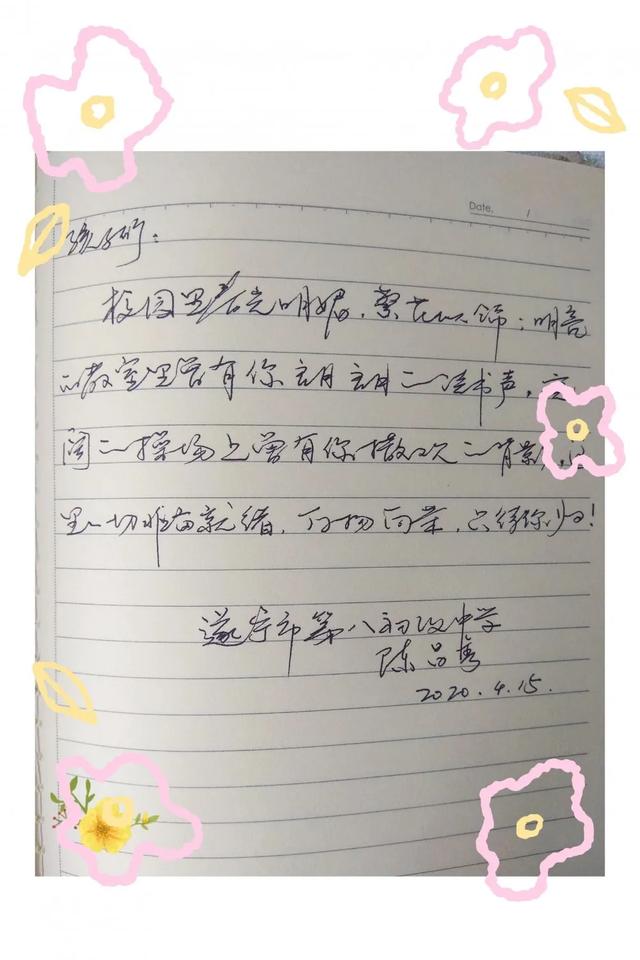 Date. /
孩子们：
校园里春光明媚，繁花似饰；明亮
的教室里曾有你朗朗的读书声，空
阔的操场上曾有你撒欢的背影，
里一切准备就绪，万物向荣，只待你归！
遂宁市第八初级中学
陈品秀
2020.4.15.